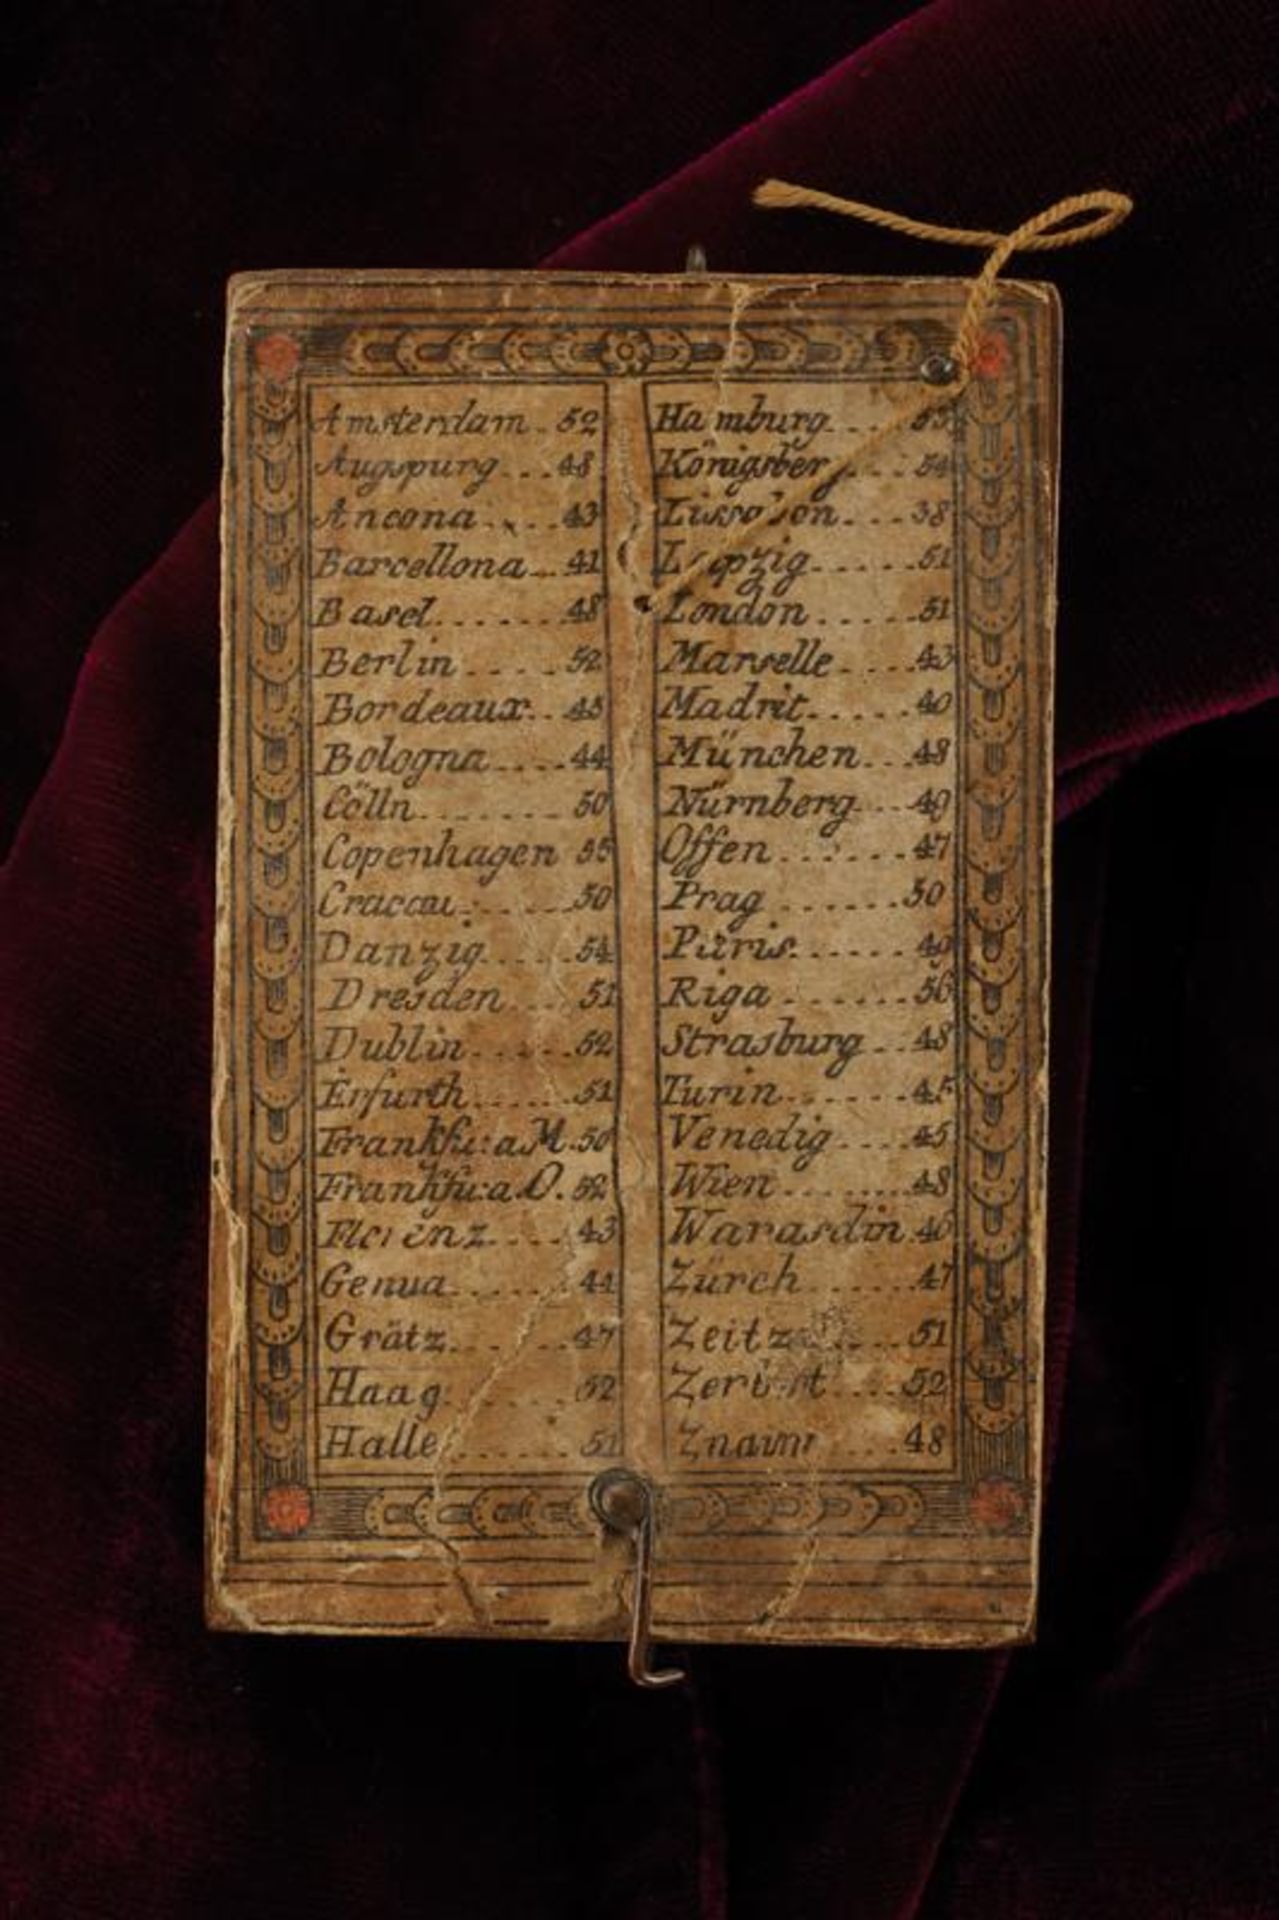 Amsterdam 52
Augspurg 48
Ancona 43
Barcellona 41
Basel 48
Berlin 52
Bordeaux 45
Bologna 44
Cölln 50
Copenhagen 55
Cracau 50
Danzig 54
Dresden 51
Dublin 52
Erfurth 51
Frankfu: a M. 50
Frankfu: a. O. 52
Florenz 43
Genua 44
Grätz 47
Haag 52
Halle 51
Hamburg
Königsberg 54
Lissabon 38
Leipzig 51
London 51
Marselle 43
Madrit 40
München 48
Nürnberg 49
Offen 47
Prag 50
Paris
Riga 56
Strasburg 48
Turin 45
Venedig 45
Wien 48
Warasdin 46
Zürch 47
Zeitz 51
Zerbst 52
Znaim 48